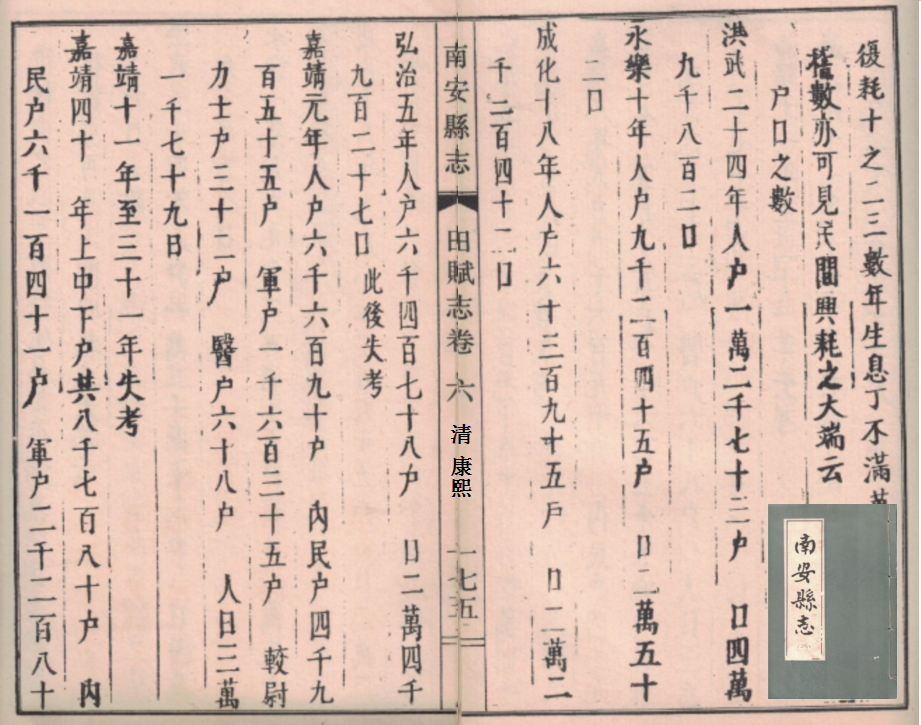 復耗十之二三數年生息丁不滿
稽數亦可見民間興耗之大端云
户口之數
洪武二十四年人户一萬二千七十三户 口四萬
九千八百二口
永樂十年人户九千二百四十五户 口二萬五十
二口
成化十八年人户六十三百九十五户 口二萬二
千二百四十二口
南安縣志 田賦志卷六 清 康熙 一七五
弘治五年人户六千四百七十八户 口二萬四千
九百二十七口 此後失考
嘉靖元年人户六千六百九十户 內民户四千九
百五十五户 軍户一千六百三十五户 較尉
力士户三十一户 醫户六十八户 人日二萬
一千七十九日
嘉靖十一年至三十一年失考
嘉靖四十 年上中下户共八千七百八十户 內
民户六千一百四十一户 軍户二千二百八十
南安縣志